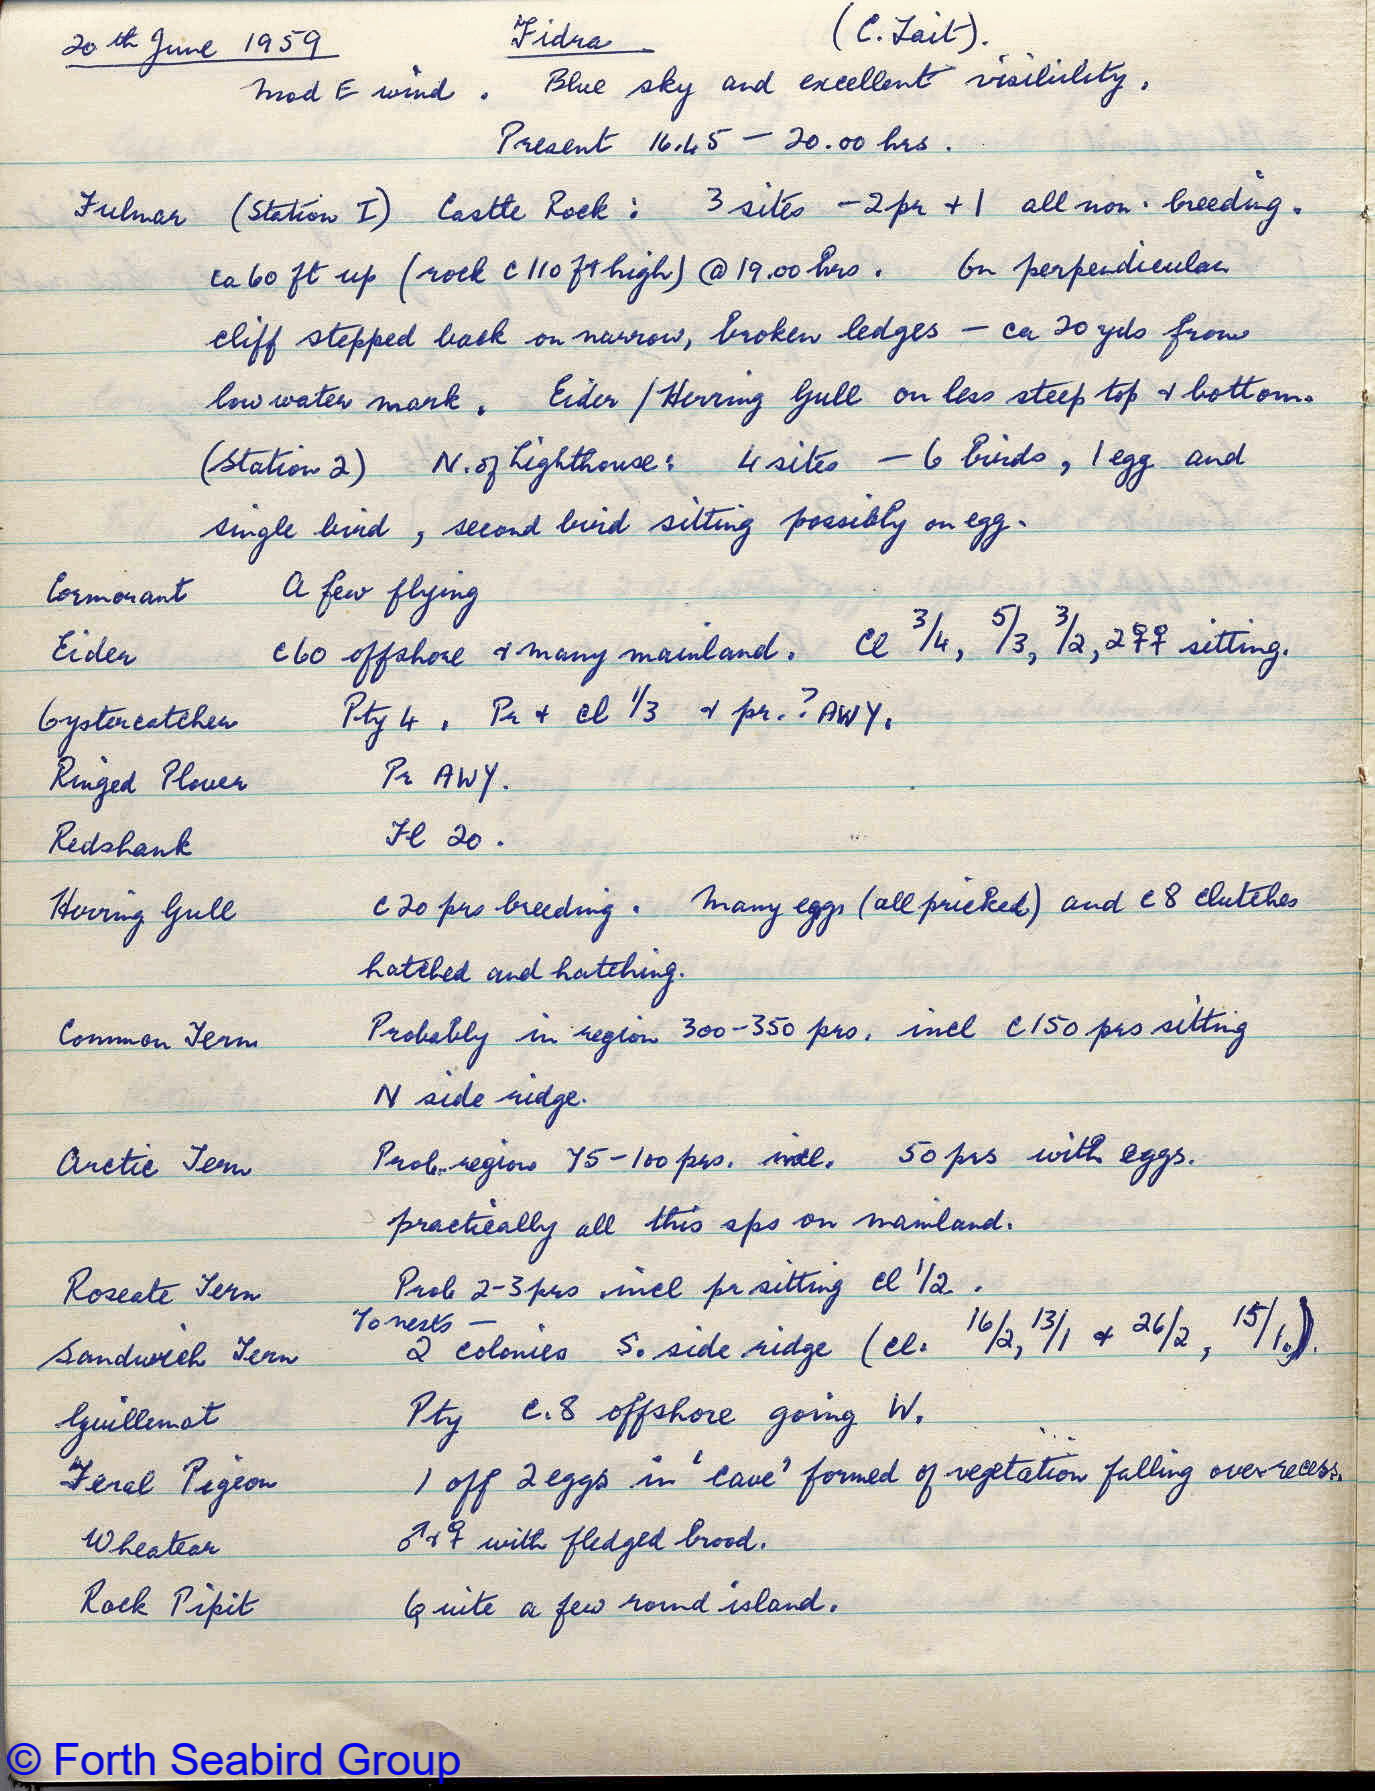 20th June 1959 Fidra (C. Tait).
Mod E wind. Blue sky and excellent visibility.
Present 16.45 – 20.00 hrs.
Fulmar (Station I) Castle Rock: 3 sites – 2pr + 1 all non-breeding.
ca 60 ft up (rock c 110 ft high) @ 19.00 hrs. On perpendicular
cliff stepped back on narrow, broken ledges – ca 20 yds from
low water mark. Eider / Herring Gull on less steep top & bottom.
(Station 2) N. of Lighthouse: 4 sites – 6 birds, 1 egg and
single bird, second bird sitting possibly on egg.
Cormorant A few flying
Eider c60 offshore & many mainland. Cl 3/4, 5/3, 3/2, 2♀♀ sitting.
Oystercatcher Pty 4. Pr & cl 1/3 & pr. ? AWY.
Ringed Plover Pr AWY.
Redshank Fl 20.
Herring Gull c 20 prs breeding. Many eggs (all pricked) and c 8 clutches
hatched and hatching.
Common Tern Probably in region 300-350 prs. incl c 150 prs sitting
N side ridge.
Arctic Tern Prob. region 75-100 prs. incl. 50 prs with eggs.
practically all this sps on mainland.
Roseate Tern Prob 2-3 prs incl pr sitting cl 1/2.
70 nests –
Sandwich Tern 2 colonies S. side ridge (cl. 16/2, 13/1 & 26/2, 15/1.).
Guillemot Pty c. 8 offshore going W.
Feral Pigeon 1 off 2 eggs in 'cave' formed of vegetation falling over recess.
Wheatear ♂ & ♀ with fledged brood.
Rock Pipit Quite a few round island.
© Forth Seabird Group